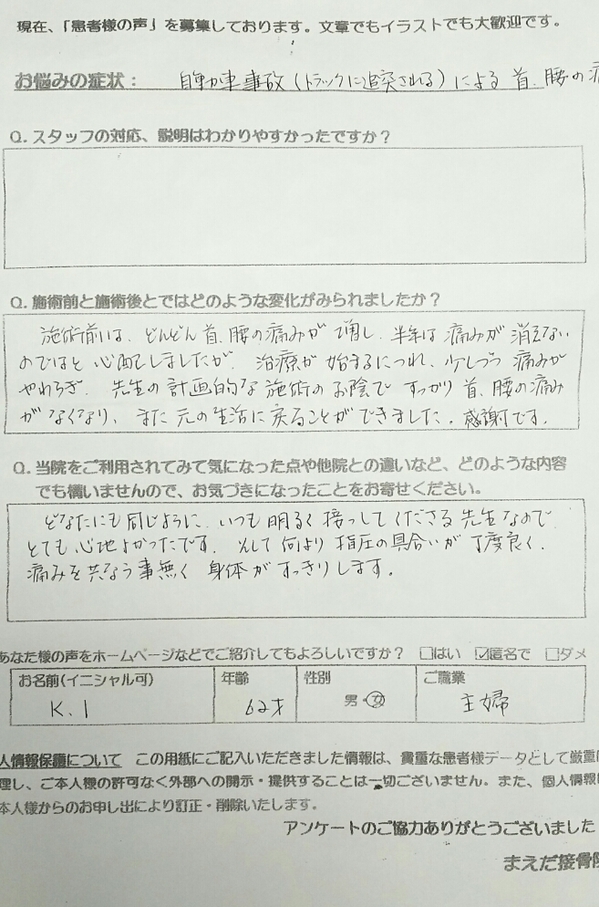 現在、「患者様の声」を募集しております。文章でもイラストでも大歓迎です。
お悩みの症状： 自動車事故(トラックに追突される)による 首、腰の
Q. スタッフの対応、説明はわかりやすかったですか？
Q. 施術前と施術後とではどのような変化がみられましたか？
施術前は、どんどん首、腰の痛みが増し、半年は痛みが消えない
のではと心配しましたが、治療が始まるにつれ、少しづつ痛みが
やわらぎ、先生の計画的な施術のお陰で すっかり首、腰の痛み
がなくなり、また元の生活に戻ることができました。感謝です。
Q. 当院をご利用されてみて気になった点や他院との違いなど、どのような内容
でも構いませんので、お気づきになったことをお寄せください。
どなたにも同じように、いつも明るく接っしてくださる先生なので
とても心地よかったです。そして何より指圧の具合いが丁度良く、
痛みを共なう事無く 身体がすっきりします。
あなた様の声をホームページなどでご紹介してもよろしいですか？ □はい ☑匿名で □ダメ
お名前(イニシャル可) 年齢 性別 ご職業
K.I 62才 男・女 主婦
人情報保護について この用紙にご記入いただきました情報は、貴重な患者様データとして厳重に
理し、ご本人様の許可なく外部への開示・提供することは一切ございません。また、個人情報
本人様からのお申し出により訂正・削除いたします。
アンケートのご協力ありがとうございました
まえだ接骨院